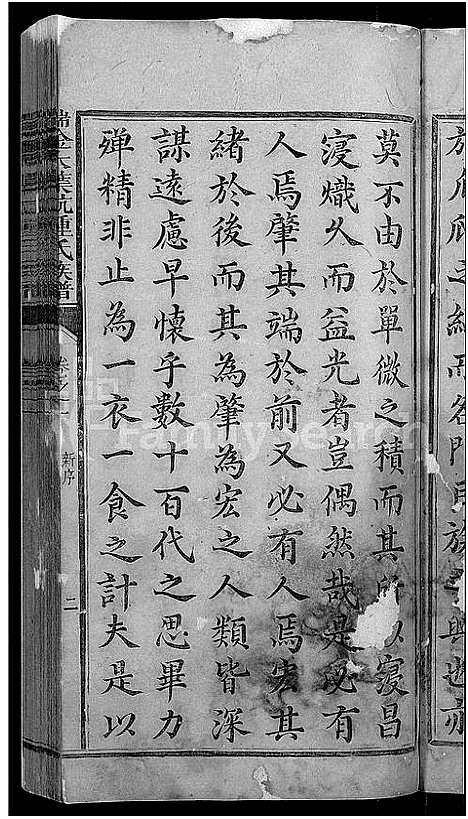 於瓜瓞之綿而名門巨族之興也亦
莫不由於單微之積而其所以寖昌
寖熾久而益光者豈偶然哉是必有
人焉肇其端於前又必有人焉宏其
緒於後而其為肇為宏之人類皆深
謀遠慮早懷乎數十百代之思畢力
殫精非止為一衣一食之計夫是以
瑞金大葉坑鍾氏族譜
卷之一
新序
二
FamilySearch